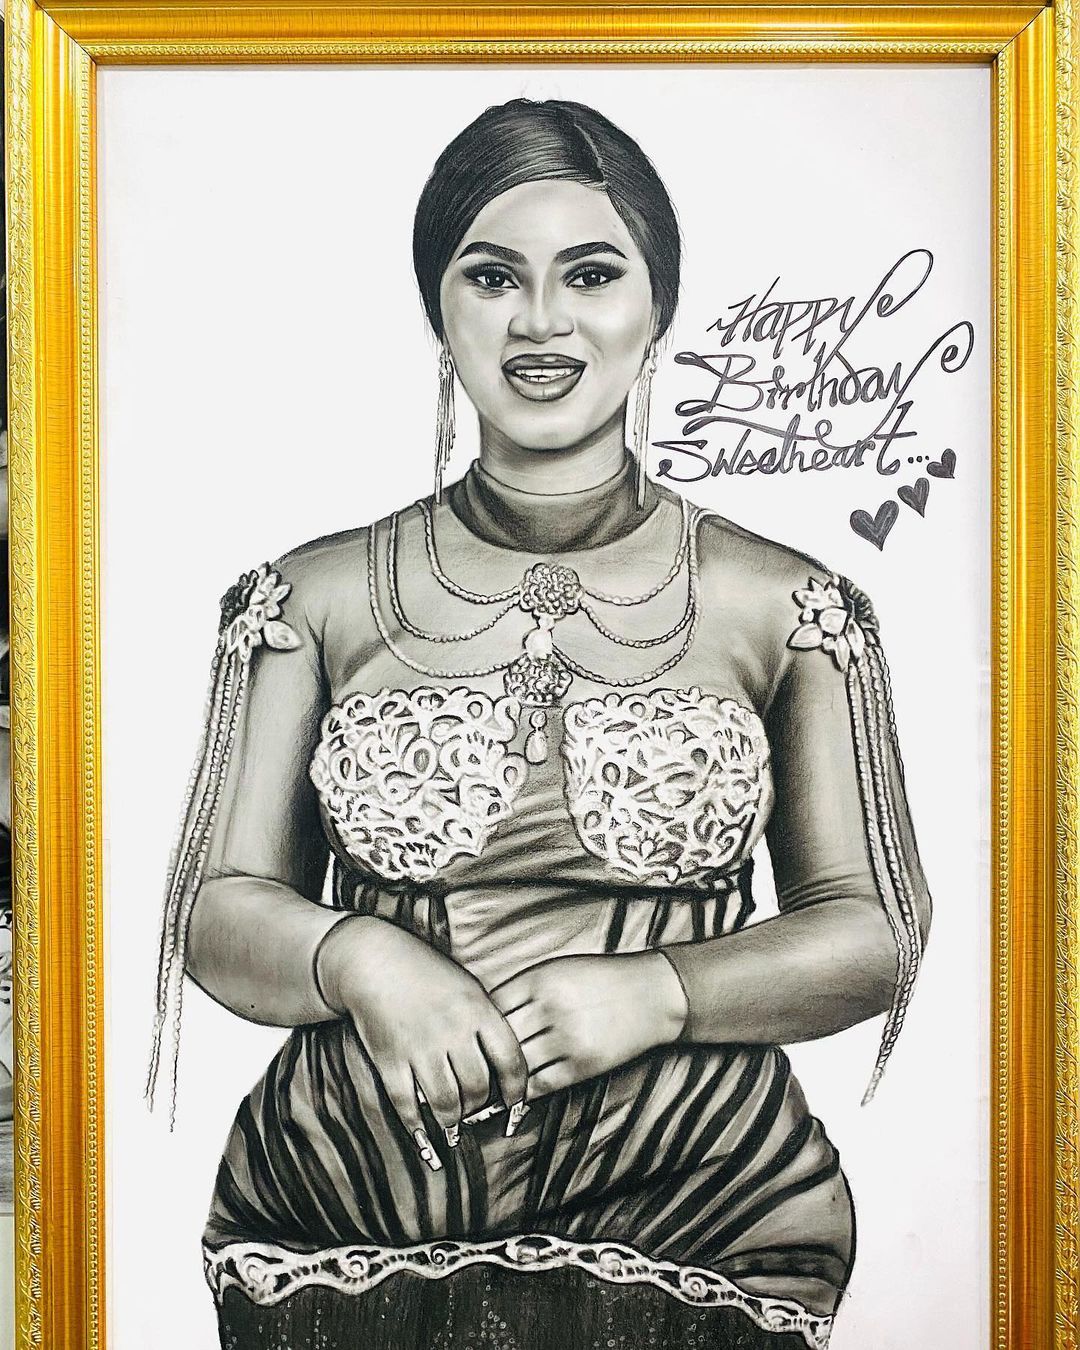 Happy
Birthday
Sweetheart...